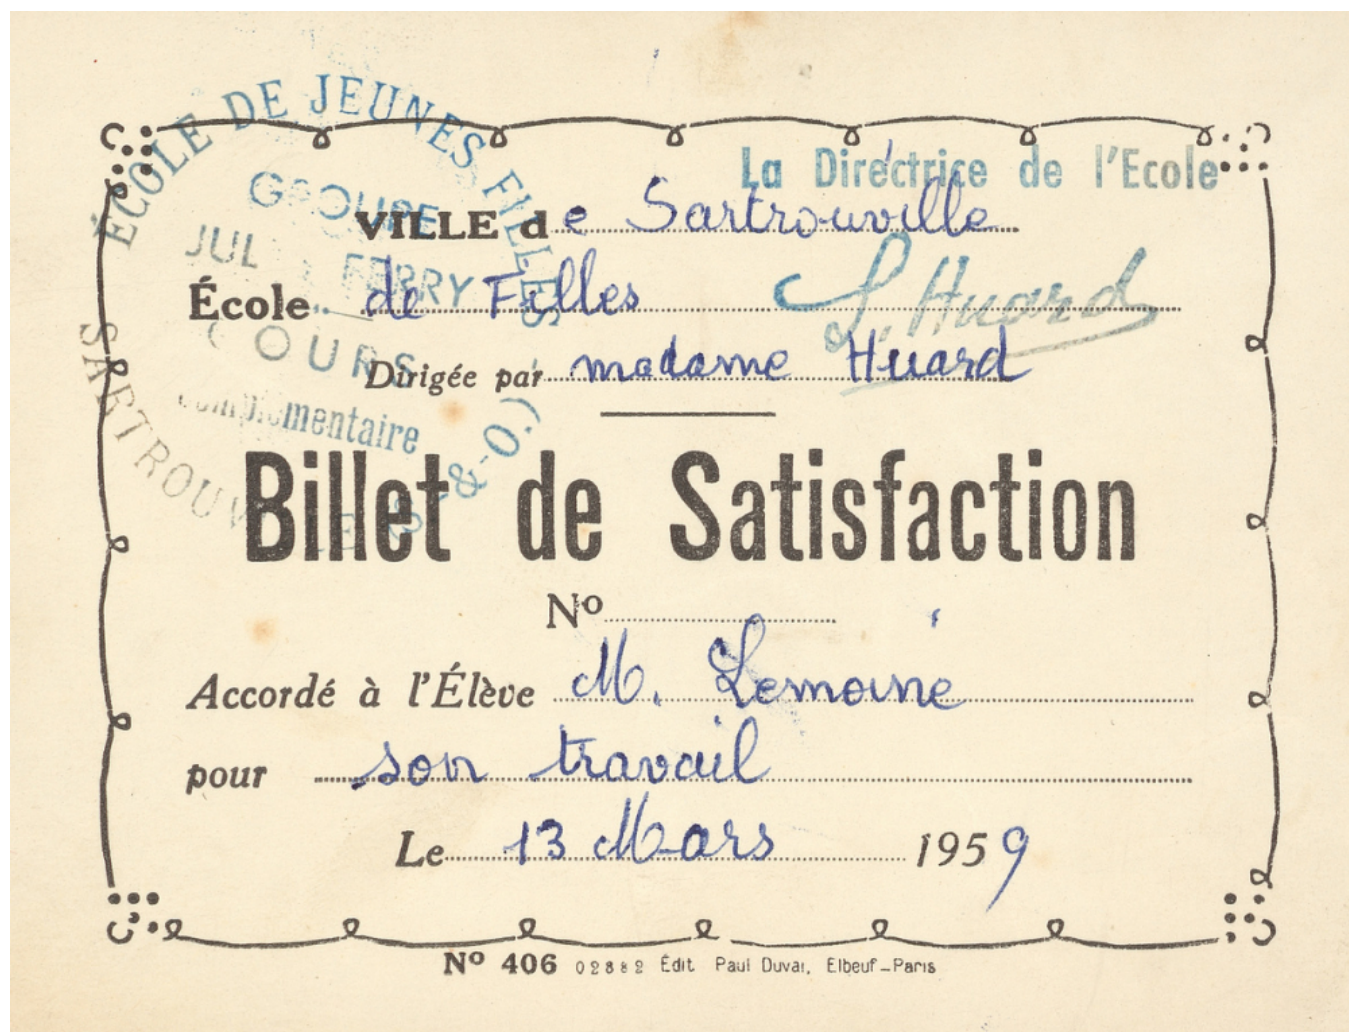 ÉCOLE DE JEUNES FILLES
GROUPE
JULES FERRY
COURS
complémentaire
SARTROUVILLE
(S.-&-O.)
La Directrice de l'Ecole
VILLE de Sartrouville
École de Filles
L. Huard
Dirigée par madame Huard
Billet de Satisfaction
Nº
Accordé à l'Élève M. Lemoine
pour son travail
Le 13 Mars 1959
Nº 406 02882 Édit. Paul Duval, Elbeuf-Paris